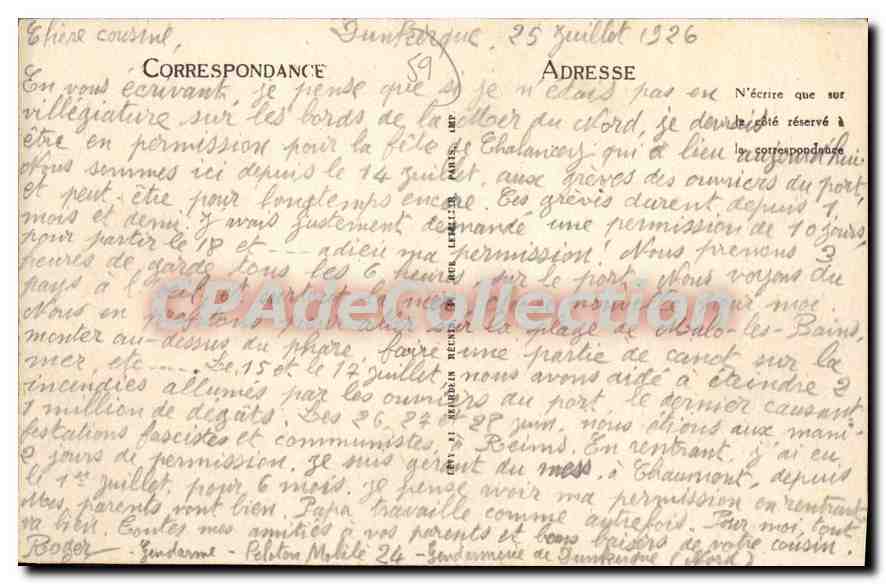 Chère cousine, Dunkerque, 25 Juillet 1926
59
CORRESPONDANCE ADRESSE
N'écrire que sur
le côté réservé à
la correspondance
En vous écrivant, je pense que si je n'étais pas en
villégiature sur les bords de la Mer du Nord, je devrais
être en permission pour la fête de Chalancey qui a lieu aujourd'hui.
Nous sommes ici depuis le 14 juillet, aux grèves des ouvriers du port,
et peut-être pour longtemps encore. Ces grèves durent depuis 1
mois et demi. J'avais justement demandé une permission de 10 jours,
pour partir le 18 et .... adieu ma permission! Nous prenons 3
heures de garde tous les 6 heures sur le port. Nous voyons du
pays à l'œil et surtout la mer chose nouvelle pour moi.
Nous en profitons pour aller sur la plage de Malo-les-Bains,
monter au-dessus du phare, faire une partie de canot sur la
mer, etc...... Le 15 et le 17 juillet, nous avons aidé à éteindre 2
incendies allumés par les ouvriers du port, le dernier causant
1 million de dégâts. Les 26, 27 et 28 juin, nous étions aux mani-
festations fascistes et communistes, à Reims. En rentrant, j'ai eu
2 jours de permission. Je suis gérant du mess, à Chaumont, depuis
le 1er juillet, pour 6 mois. Je pense avoir ma permission en rentrant
Mes parents vont bien. Papa travaille comme autrefois. Pour moi, tout
va bien. Toutes mes amitiés à vos parents et bons baisers de votre cousin.
Roger - Gendarme - Peloton Mobile 24 - Gendarmerie de Dunkerque (Nord)
LÉVY ET NEURDEIN RÉUNIS, RUE LETELLIER, PARIS. IMP
CPAdeCollection